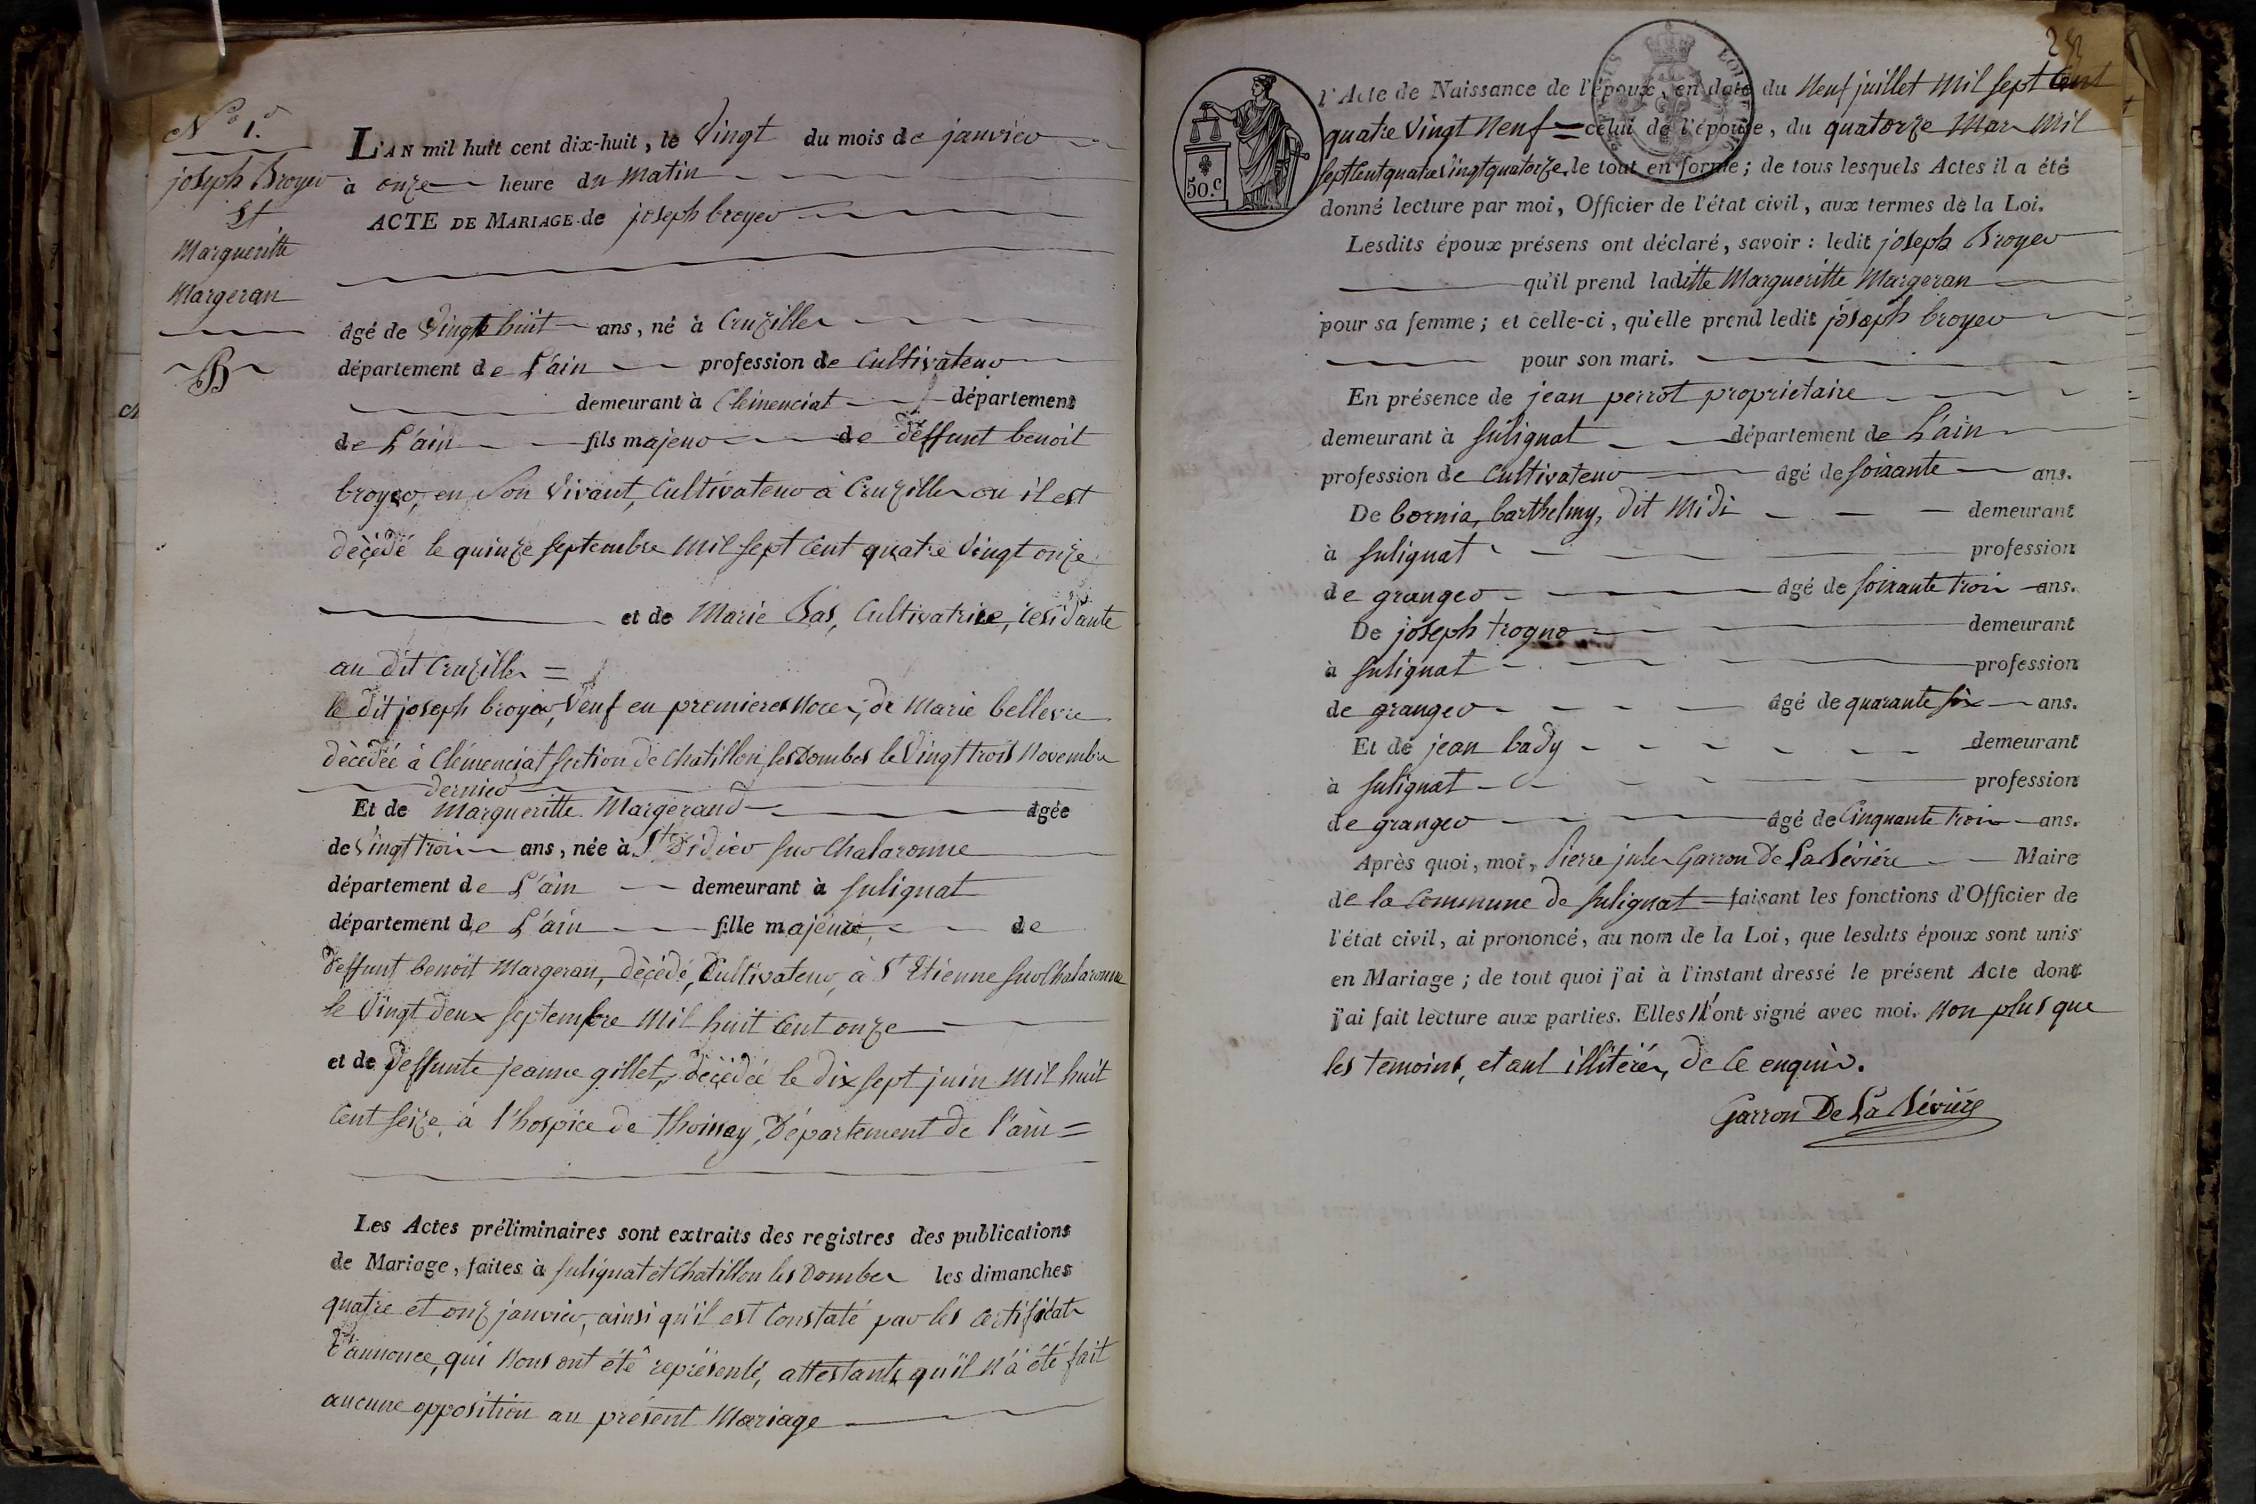 N° 1.er
joseph Broyer
Et
Margueritte
Margeran
L'AN mil huit cent dix-huit, le Vingt du mois de janvier
à onze heure du Matin
ACTE DE MARIAGE de joseph broyer
âgé de Vingt huit ans, né à Cruzilles
département de L'ain profession de Cultivateur
demeurant à Clémenciat département
de L'ain fils majeur de deffunt benoit
broyer, en Son Vivant, Cultivateur à Cruzilles ou il est
décédé le quinze septembre Mil sept Cent quatre Vingt onze
et de Marie Bas, Cultivatrice, residante
au dit Cruzilles =
le dit joseph broyer, Veuf en premieres Noces, de Marie bellevre
décédée à Clémenciat section de Chatillon les Dombes le Vingt trois Novembre
dernier
Et de Margueritte Margerand agée
de Vingt trois ans, née à St Didier sur Chalaronne
département de L'ain demeurant à Sulignat
département de L'ain fille majeure, de
deffunt benoit Margeran, décédé, Cultivateur, à St Etienne sur Chalaronne
le Vingt deux septembre Mil huit Cent onze
et de deffunte jeanne gillet, décédée le dix sept juin Mil huit
Cent seize, à l'hospice de thoissey, Département de l'ain =
Les Actes préliminaires sont extraits des registres des publications
de Mariage, faites à Sulignat et Chatillon les Dombes les dimanches
quatre et onz janvier, ainsi qu'il est Constaté par les certificats
d'annonce, qui Nous ont été représenté, attestants qu'il N'a été fait
aucune opposition au présent Mariage
50.c
l'Acte de Naissance de l'époux, en date du Neuf juillet Mil sept Cent
quatre Vingt Neuf = celui de l'épouse, du quatorze Mars Mil
sept Cent quatre Vingt quatorze le tout en forme; de tous lesquels Actes il a été
donné lecture par moi, Officier de l'état civil, aux termes de la Loi.
Lesdits époux présens ont déclaré, savoir: ledit joseph Broyer
qu'il prend laditte Margueritte Margeran
pour sa femme; et celle-ci, qu'elle prend ledit joseph broyer
pour son mari.
En présence de jean perrot propriétaire
demeurant à Sulignat département de L'ain
profession de Cultivateur âgé de soixante ans.
De bornia, barthelmy, dit Midi demeurant
à Sulignat profession
de granger âgé de soixante trois ans.
De joseph trogno demeurant
à Sulignat profession
de granger âgé de quarante six ans.
Et de jean bady demeurant
à Sulignat profession
de granger âgé de Cinquante trois ans.
Après quoi, moi, Pierre jules Garron De La Bévière Maire
de la Commune de Sulignat = faisant les fonctions d'Officier de
l'état civil, ai prononcé, au nom de la Loi, que lesdits époux sont unis
en Mariage; de tout quoi j'ai à l'instant dressé le présent Acte dont
j'ai fait lecture aux parties. Elles N'ont signé avec moi. Non plus que
les temoins, etant illitérés, de Ce enquis.
Garron De La Bévière